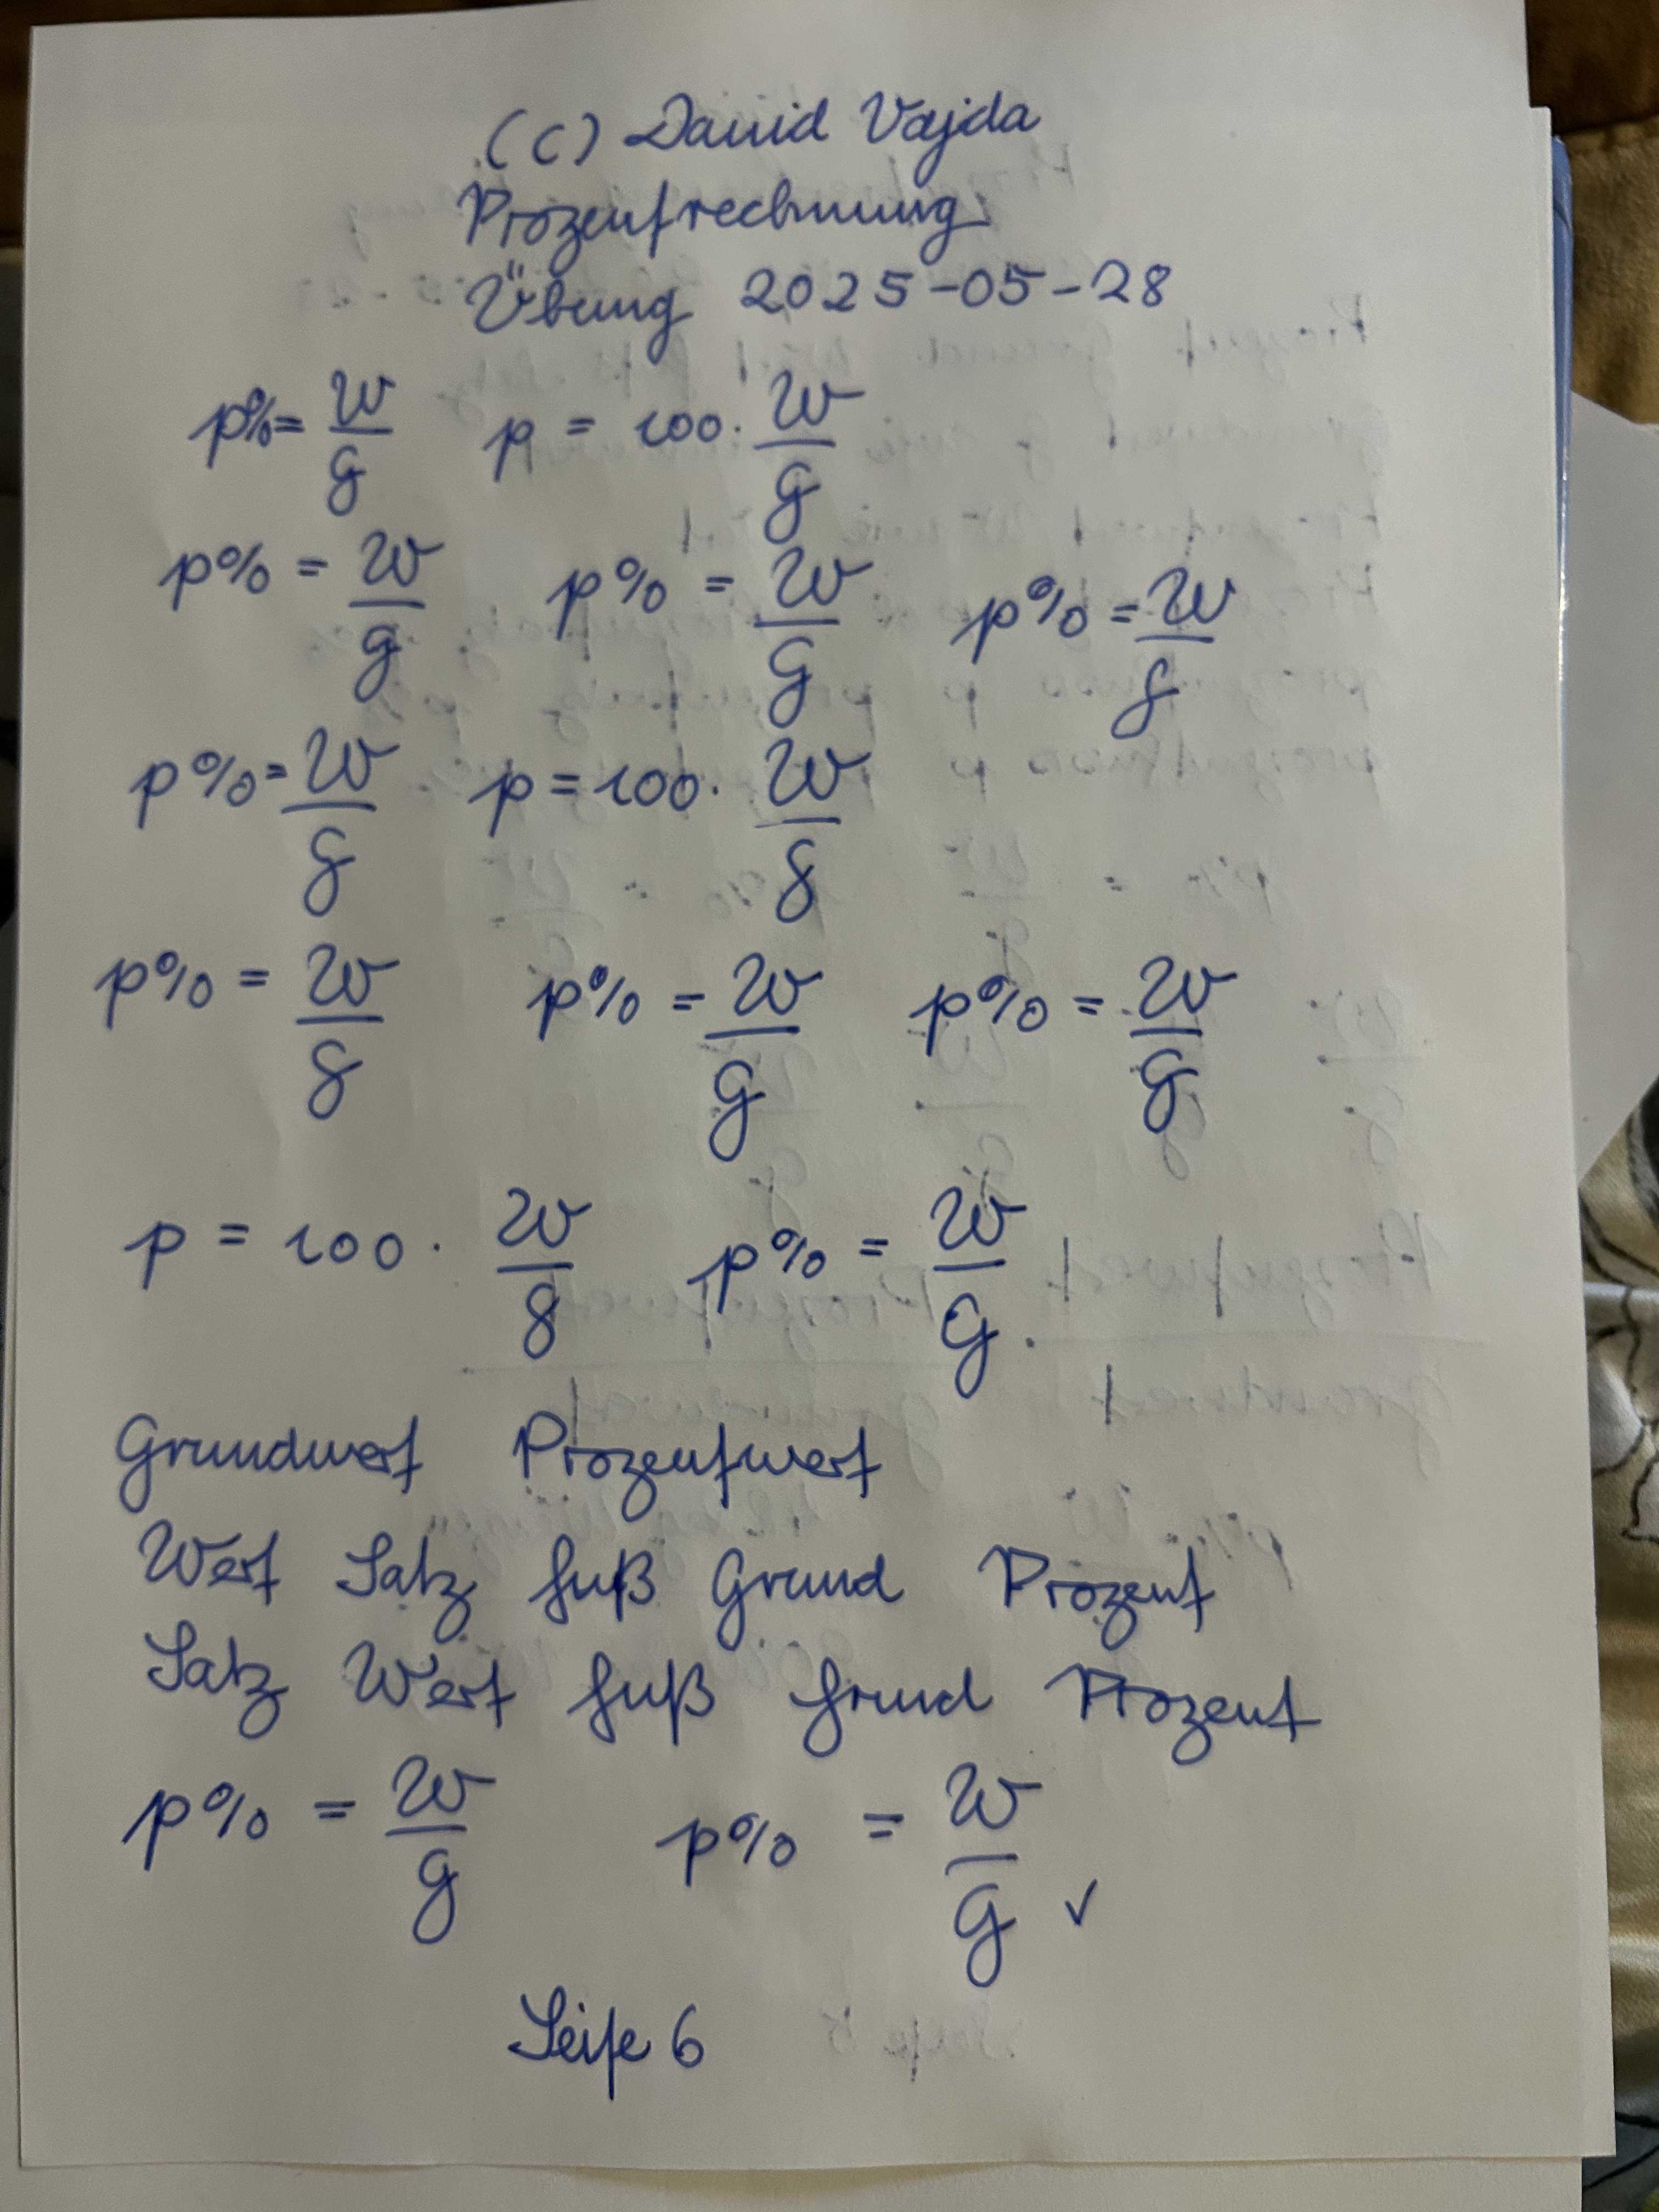 (C) David Vajda
Prozentrechnung
Übung 2025-05-28
p% = w/g p = 100 · w/g
p% = w/g p% = w/g p% = w/g
p% = w/g p = 100 · w/g
p% = w/g p% = w/g p% = w/g
p = 100 · w/g p% = w/g
Grundwert Prozentwert
Wert Satz fuß Grund Prozent
Satz Wert fuß Grund Prozent
p% = w/g p% = w/g ✓
Seite 6